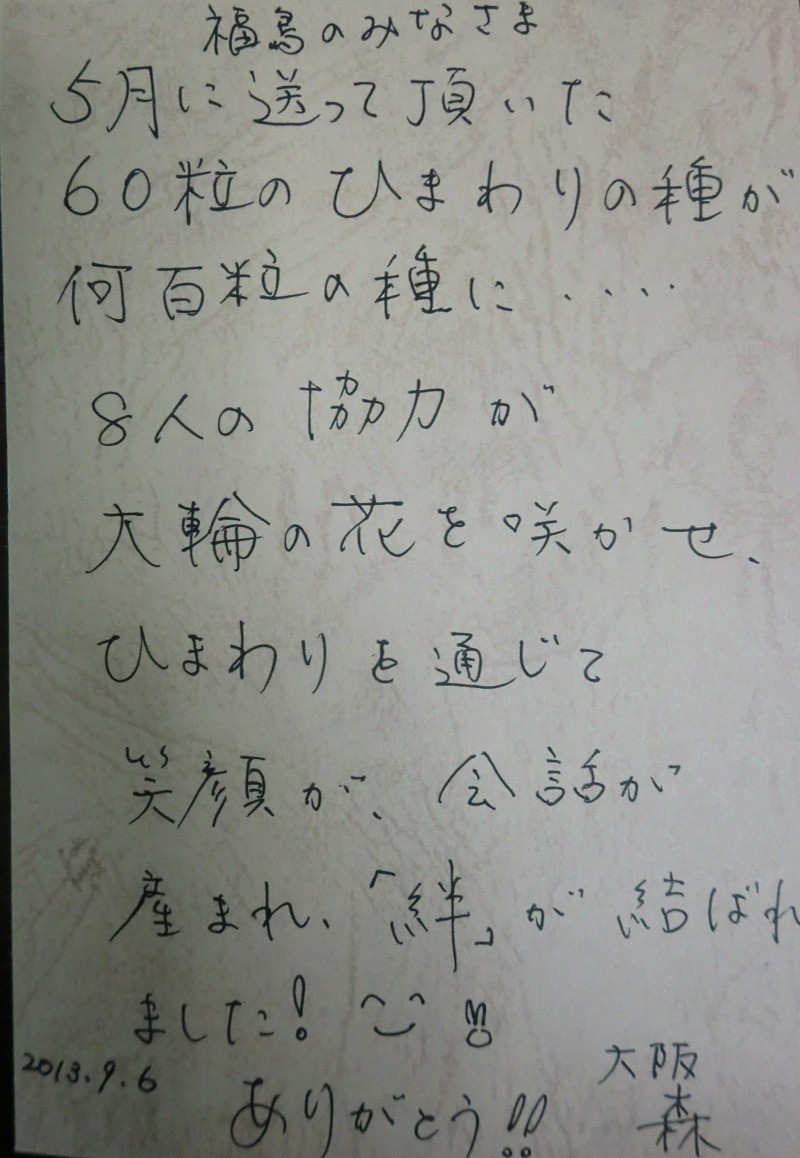 福島のみなさま
5月に送って頂いた
60粒のひまわりの種が
何百粒の種に....
8人の協力が
大輪の花を咲かせ、
ひまわりを通じて
笑顔が、会話が
産まれ、「絆」が結ばれ
ました!
2013.9.6
ありがとう!!
大阪
森